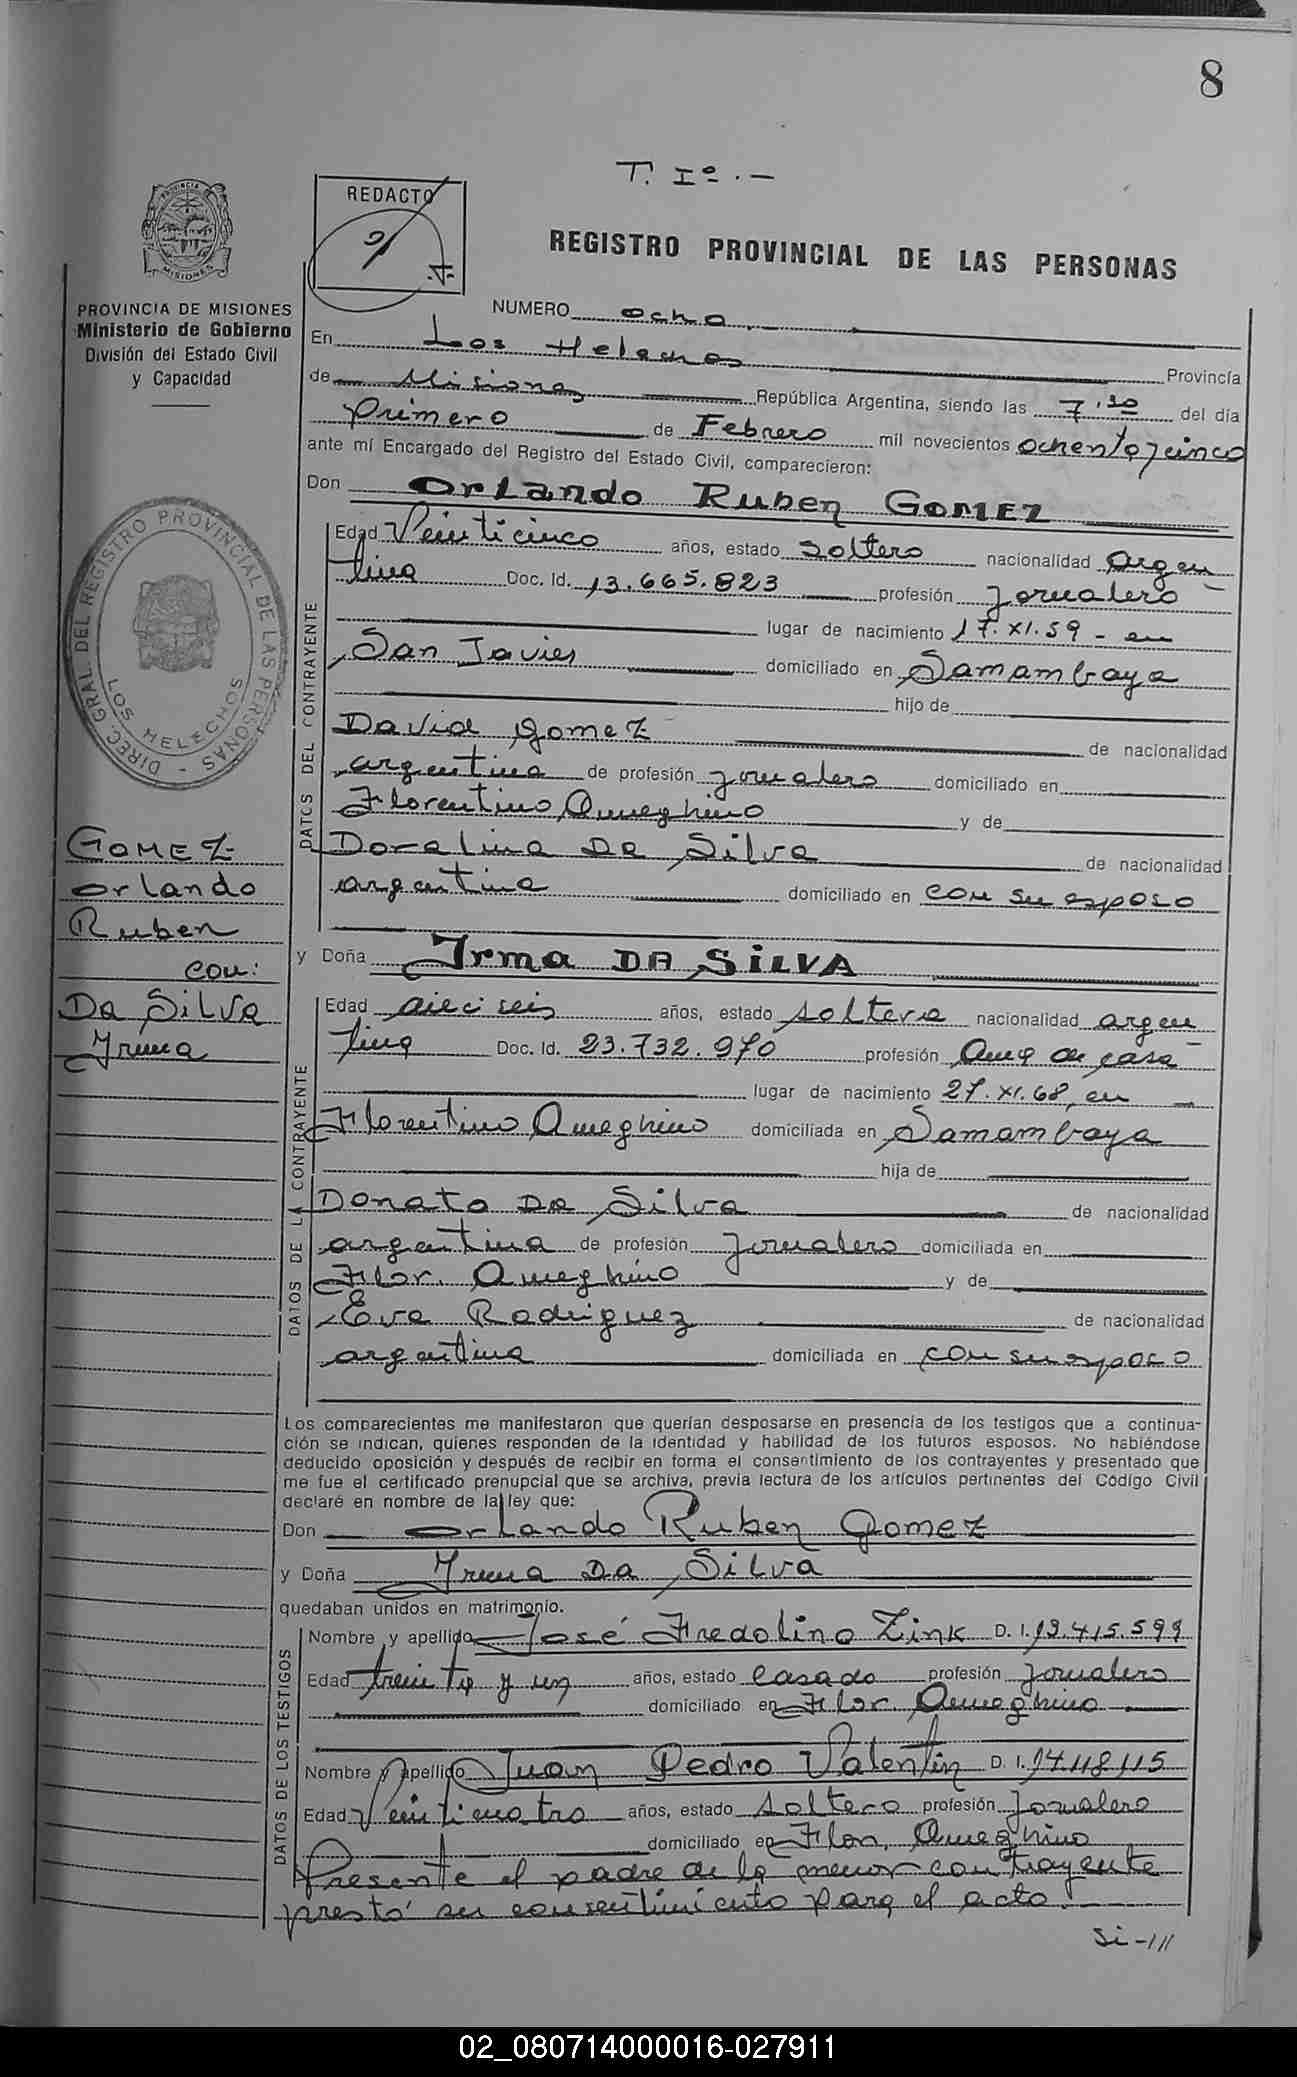 8
T. Iº.-
PROVINCIA DE MISIONES
REDACTO
REGISTRO PROVINCIAL DE LAS PERSONAS
PROVINCIA DE MISIONES
Ministerio de Gobierno
División del Estado Civil
y Capacidad
NUMERO ocho
En Los Helechos Provincia
de Misiones República Argentina, siendo las 7,30 del día
primero de Febrero mil novecientos ochenta y cinco
ante mí Encargado del Registro del Estado Civil, comparecieron:
Don Orlando Ruben GOMEZ
DIREC. GRAL. DEL REGISTRO PROVINCIAL DE LAS PERSONAS -
LOS HELECHOS
DATOS DEL CONTRAYENTE
Edad Veinticinco años, estado soltero nacionalidad argen
tina Doc. Id. 13.665.823 profesión Jornalero
lugar de nacimiento 17.XI.59 - en
San Javier domiciliado en Samambaya
hijo de
David Gomez de nacionalidad
argentina de profesión jornalero domiciliado en
Florentino Ameghino y de
Doralina Da Silva de nacionalidad
argentina domiciliado en con su esposo
GOMEZ
Orlando
Ruben
con:
Da Silva
Irma
y Doña Irma DA SILVA
DATOS DE LA CONTRAYENTE
Edad dieciseis años, estado soltera nacionalidad argen
tina Doc. Id. 23.732.970 profesión Ama de casa
lugar de nacimiento 27.XI.68, en
Florentino Ameghino domiciliada en Samambaya
hija de
Donato Da Silva de nacionalidad
argentina de profesión Jornalero domiciliada en
Flor. Ameghino y de
Eva Rodriguez de nacionalidad
argentina domiciliada en con su esposo
Los comparecientes me manifestaron que querían desposarse en presencia de los testigos que a continua-
ción se indican, quienes responden de la identidad y habilidad de los futuros esposos. No habiéndose
deducido oposición y después de recibir en forma el consentimiento de los contrayentes y presentado que
me fue el certificado prenupcial que se archiva, previa lectura de los artículos pertinentes del Código Civil
declaré en nombre de la ley que:
Don Orlando Ruben Gomez
y Doña Irma Da Silva
quedaban unidos en matrimonio.
DATOS DE LOS TESTIGOS
Nombre y apellido José Fredolino Zink D. I. 12.415.599
Edad treinta y un años, estado casado profesión Jornalero
domiciliado en Flor. Ameghino
Nombre y apellido Juan Pedro Valentin D. I. 14.118.115
Edad Veinticuatro años, estado soltero profesión Jornalero
domiciliado en Flor. Ameghino
Presente el padre de la menor contrayente
prestó su consentimiento para el acto.
Si-///
02_080714000016-027911